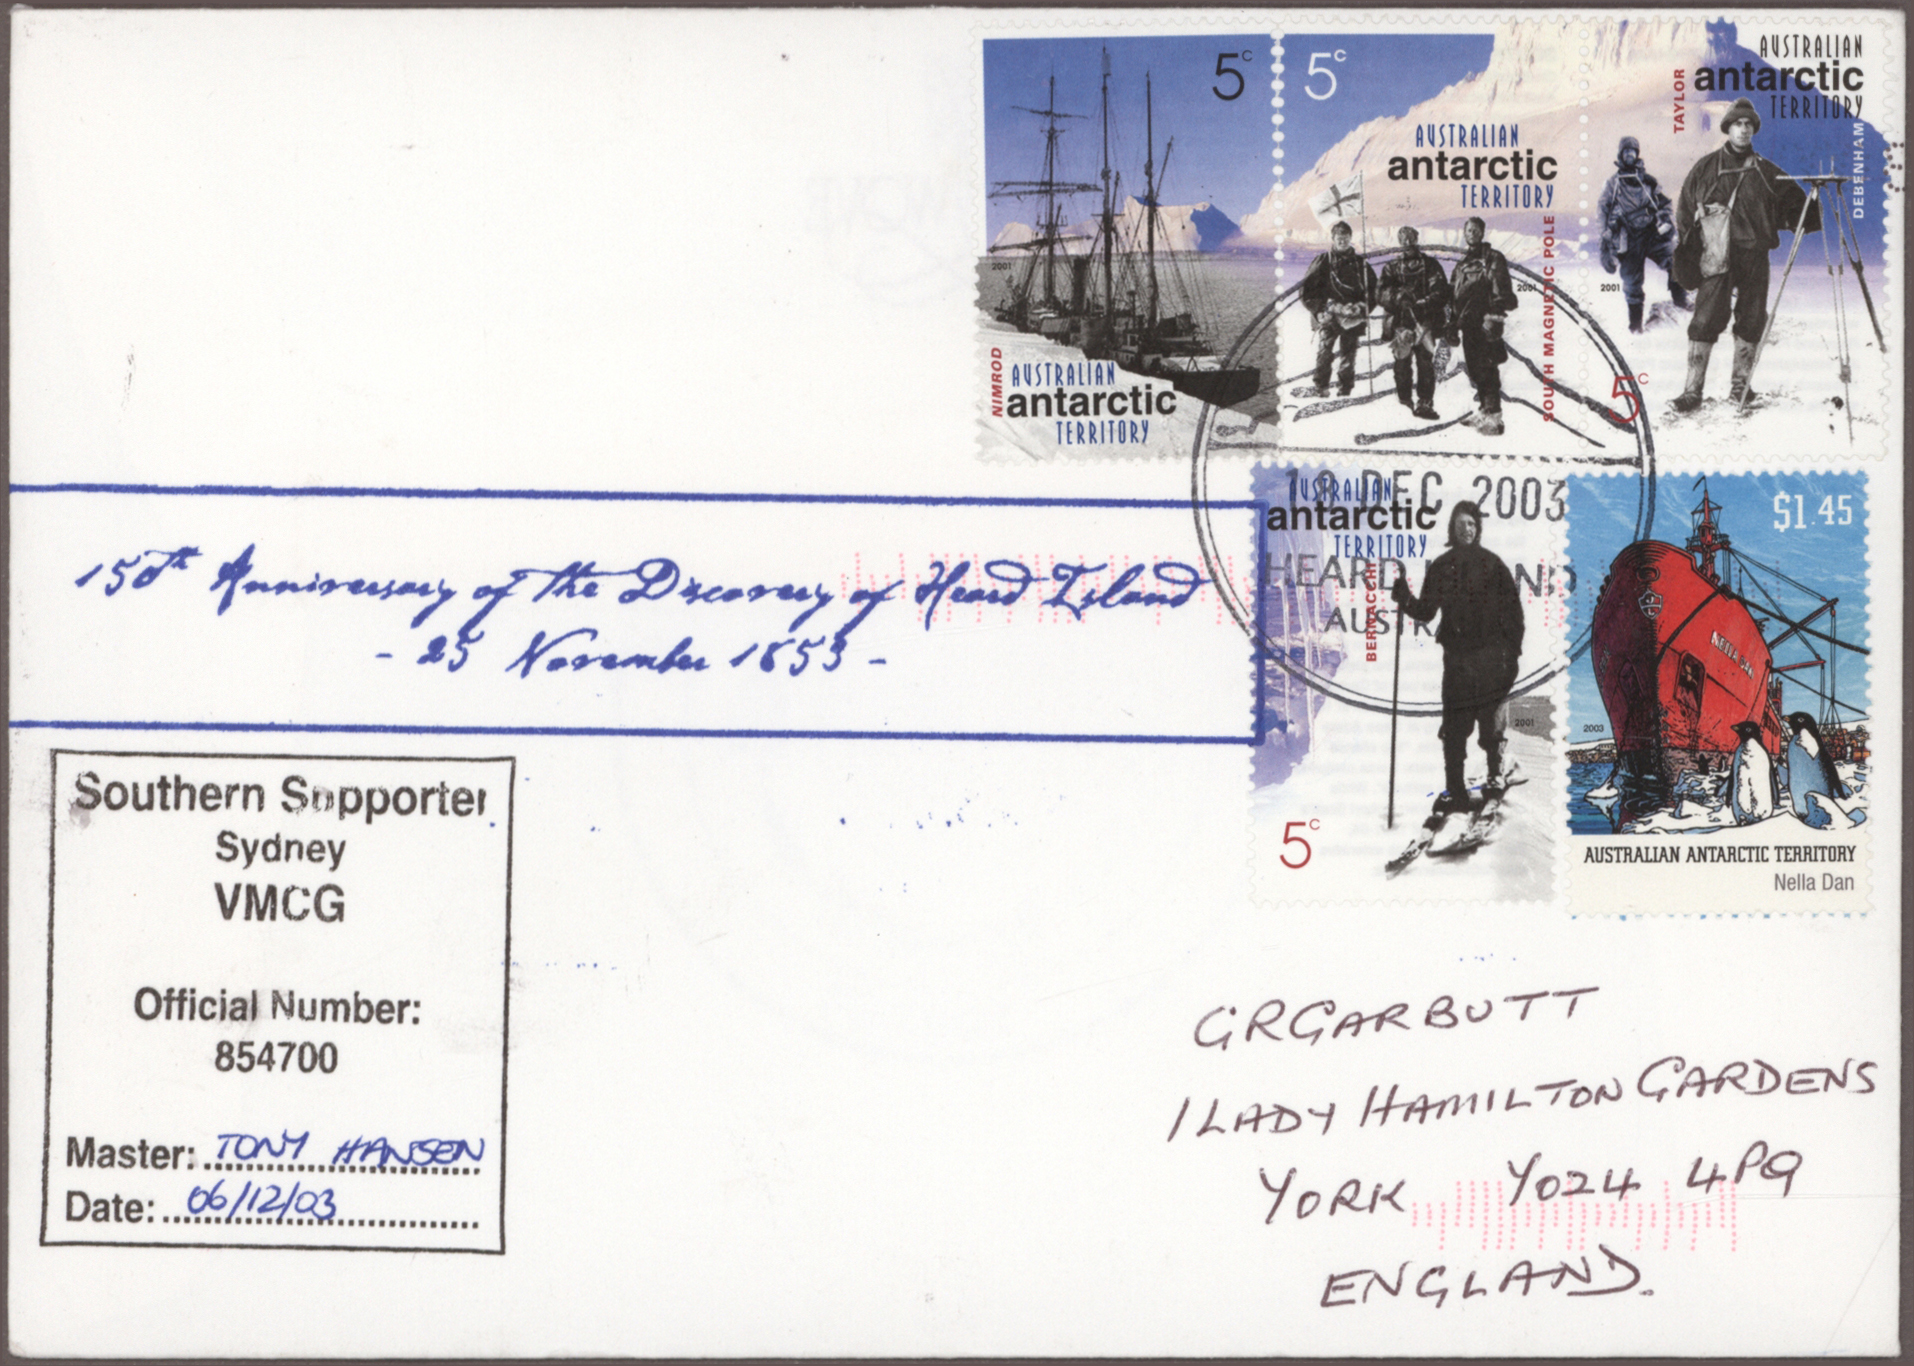 5c
NIMROD
2001
AUSTRALIAN
antarctic
TERRITORY
5c
AUSTRALIAN
antarctic
TERRITORY
2001
SOUTH MAGNETIC POLE
TAYLOR
AUSTRALIAN
antarctic
TERRITORY
DEBENHAM
2001
5c
DEC 2003
HEARD ISLAND
AUSTRALIAN
antarctic
TERRITORY
BERNACCHI
2001
5c
$1.45
NELLA DAN
2003
AUSTRALIAN ANTARCTIC TERRITORY
Nella Dan
150th Anniversary of the Discovery of Heard Island
- 25 November 1853 -
Southern Supporter
Sydney
VMCG
Official Number:
854700
Master: TONY HANSEN
Date: 06/12/03
GRGARBUTT
1 LADY HAMILTON GARDENS
YORK YO24 4PQ
ENGLAND.